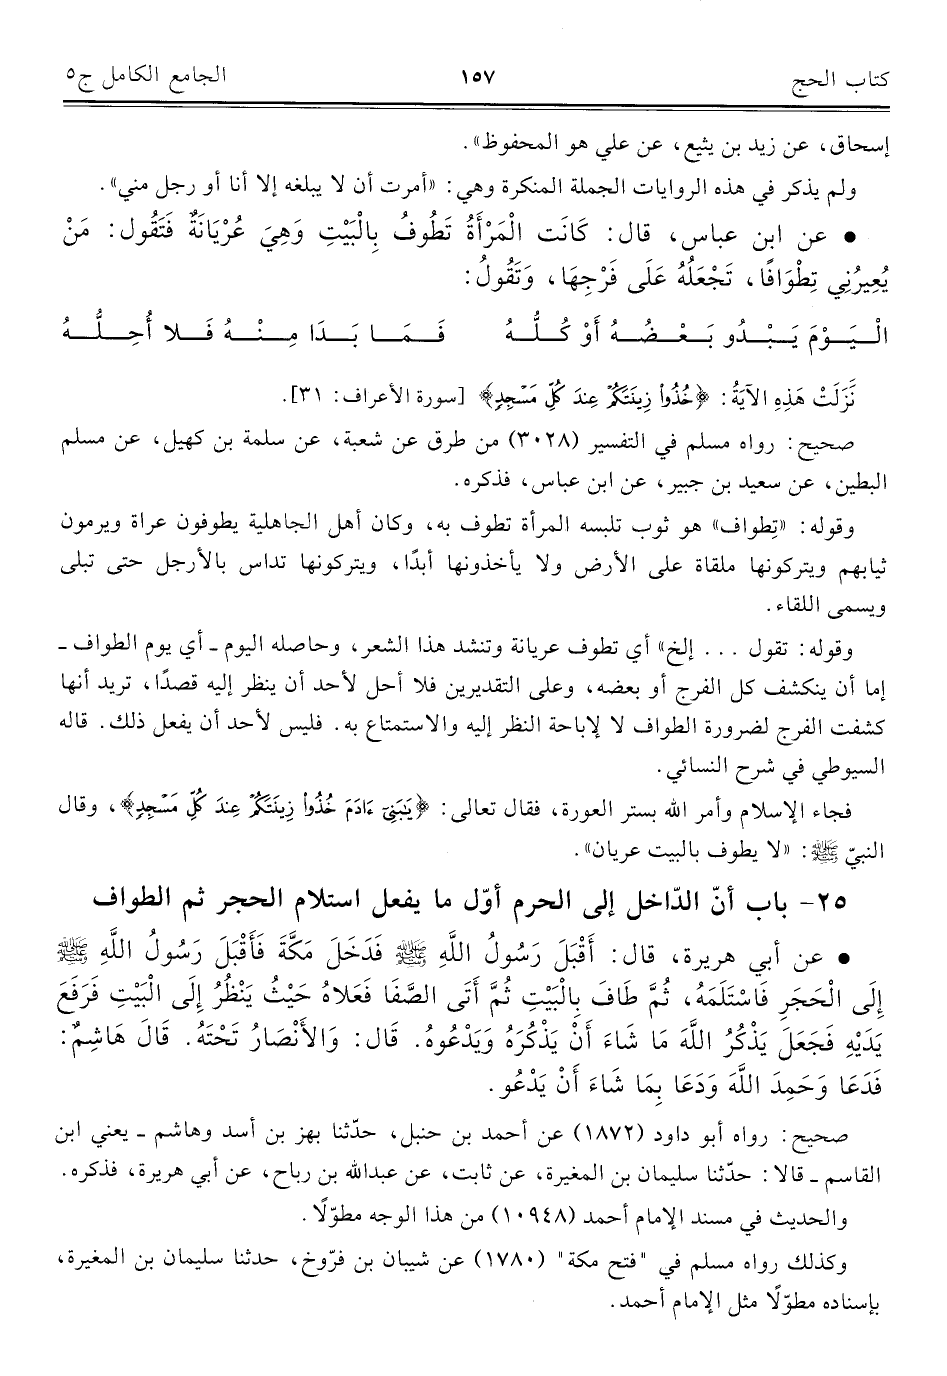 كتاب الحج ١٥٧ الجامع الكامل ج٥
إسحاق، عن زيد بن يثيع، عن علي هو المحفوظ».
ولم يذكر في هذه الروايات الجملة المنكرة وهي: «أمرت أن لا يبلغه إلا أنا أو رجل مني».
• عن ابن عباس، قال: كَانَت الْمَرْأَةُ تَطُوفُ بِالْبَيْتِ وَهِيَ عُرْيَانَةٌ فَتَقُول: مَنْ
يُعِيرُنِي تِطْوَافًا، تَجْعَلُهُ عَلَى فَرْجِهَا، وَتَقُولُ:
الْيَوْمَ يَبْدُو بَعْضُهُ أَوْ كُلُّهُ فَمَا بَدَا مِنْهُ فَلا أُحِلُّهُ
نَزَلَتْ هَذِهِ الآيَةُ: ﴿خُذُوا۟ زِينَتَكُمْ عِندَ كُلِّ مَسْجِدٍ﴾ [سورة الأعراف: ٣١].
صحيح: رواه مسلم في التفسير (٣٠٢٨) من طرق عن شعبة، عن سلمة بن كهيل، عن مسلم
البطين، عن سعيد بن جبير، عن ابن عباس، فذكره.
وقوله: «تِطواف» هو ثوب تلبسه المرأة تطوف به، وكان أهل الجاهلية يطوفون عراة ويرمون
ثيابهم ويتركونها ملقاة على الأرض ولا يأخذونها أبدًا، ويتركونها تداس بالأرجل حتى تبلى
ويسمى اللقاء.
وقوله: تقول ... إلخ» أي تطوف عريانة وتنشد هذا الشعر، وحاصله اليوم ـ أي يوم الطواف ـ
إما أن ينكشف كل الفرج أو بعضه، وعلى التقديرين فلا أحل لأحد أن ينظر إليه قصدًا، تريد أنها
كشفت الفرج لضرورة الطواف لا لإباحة النظر إليه والاستمتاع به. فليس لأحد أن يفعل ذلك. قاله
السيوطي في شرح النسائي.
فجاء الإسلام وأمر الله بستر العورة، فقال تعالى: ﴿يَٰبَنِىٓ ءَادَمَ خُذُوا۟ زِينَتَكُمْ عِندَ كُلِّ مَسْجِدٍ﴾، وقال
النبيّ ﷺ: «لا يطوف بالبيت عريان».
٢٥- باب أنّ الدّاخل إلى الحرم أوّل ما يفعل استلام الحجر ثم الطواف
• عن أبي هريرة، قال: أَقْبَلَ رَسُولُ اللَّهِ ﷺ فَدَخَلَ مَكَّةَ فَأَقْبَلَ رَسُولُ اللَّهِ ﷺ
إِلَى الْحَجَرِ فَاسْتَلَمَهُ، ثُمَّ طَافَ بِالْبَيْتِ ثُمَّ أَتَى الصَّفَا فَعَلاهُ حَيْثُ يَنْظُرُ إِلَى الْبَيْتِ فَرَفَعَ
يَدَيْهِ فَجَعَلَ يَذْكُرُ اللَّهَ مَا شَاءَ أَنْ يَذْكُرَهُ وَيَدْعُوهُ. قَال: وَالأَنْصَارُ تَحْتَهُ. قَالَ هَاشِمٌ:
فَدَعَا وَحَمِدَ اللَّهَ وَدَعَا بِمَا شَاءَ أَنْ يَدْعُو.
صحيح: رواه أبو داود (١٨٧٢) عن أحمد بن حنبل، حدّثنا بهز بن أسد وهاشم ـ يعني ابن
القاسم ـ قالا: حدّثنا سليمان بن المغيرة، عن ثابت، عن عبدالله بن رباح، عن أبي هريرة، فذكره.
والحديث في مسند الإمام أحمد (١٠٩٤٨) من هذا الوجه مطوّلًا.
وكذلك رواه مسلم في "فتح مكة" (١٧٨٠) عن شيبان بن فرّوخ، حدثنا سليمان بن المغيرة،
بإسناده مطوّلًا مثل الإمام أحمد.